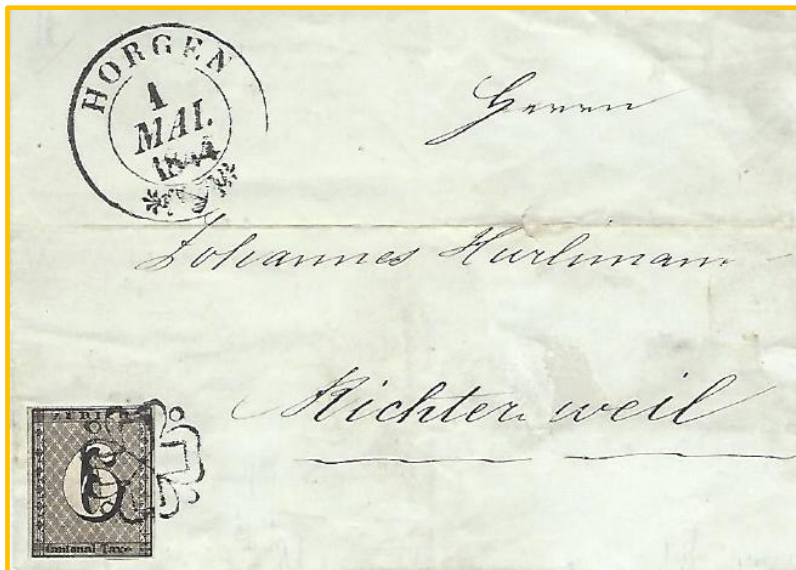 HORGEN
1
MAI.
1844
Herrn
Johannes Hurlimann
Richterweil
ZÜRICH
6
Cantonal Taxe